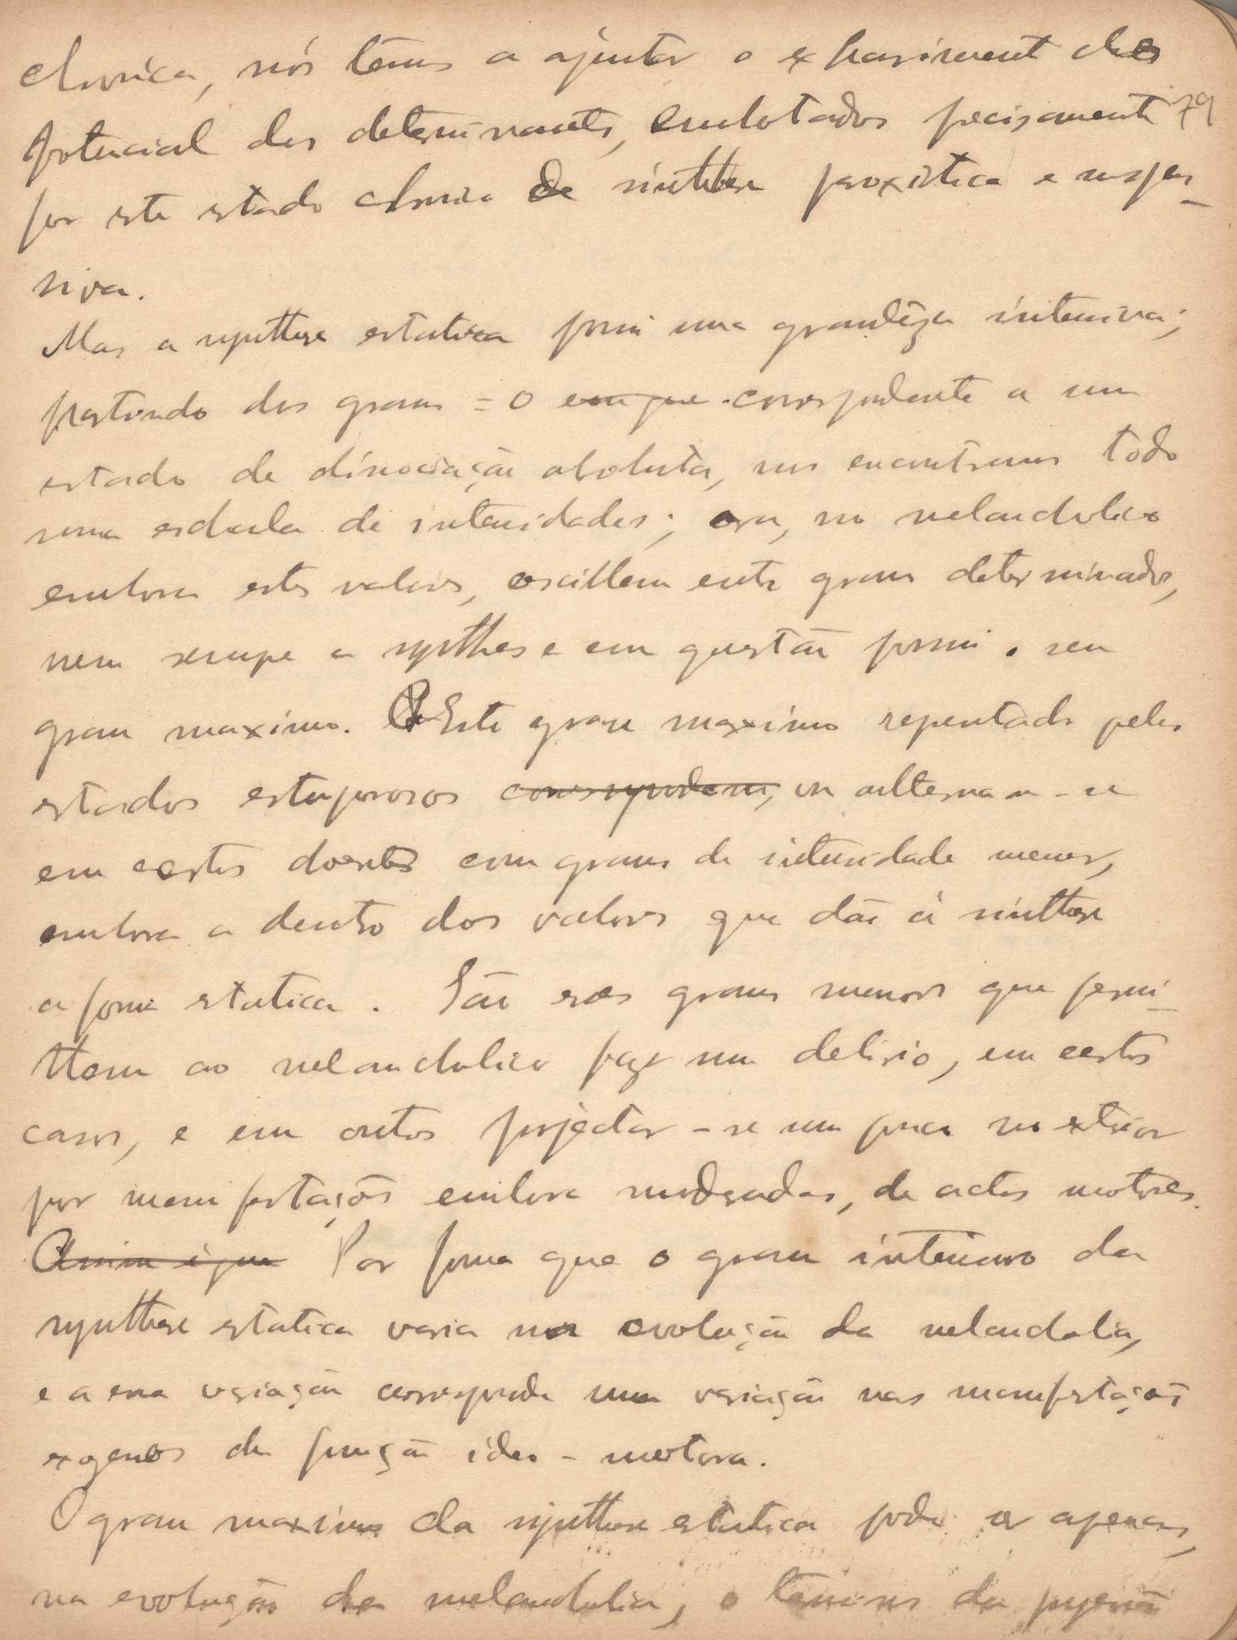 chronica, nós temos a ajuntar o
potencial dos determinantes, embotados precisamente 79
por este estado chronico de sinthese e
siva.
Mas a synthese estatica possui uma grandêza intensiva;
partindo dos graus = 0 em que correspondente a um
estado de dissociação absoluta, nós encontramos todo
uma eschala de intensidades; ora, no melancholico
embora estes valores, oscillem entre graus determinados,
nem sempre a synthese em questão possui o seu
grau maximo. Este grau maximo representado pelos
estados estuporosos correspondem, ou alternam-se
em certos doentes com graus de intensidade menor,
embora a dentro dos valores que dão á sinthese
a forma estatica. São esses graus menores que permi-
ttem ao melancholico fazer um delirio, em certos
casos, e em outros projectar-se um pouco no exterior
por manifestações embora moderadas, de actos motores.
Assim é que Por forma que o grau intensivo da
synthese estatica varia na evolução da melancholia,
e a essa variação corresponde uma variação nas manifestações
exogenas da função ideo-motora.
O grau maximo da synthese estatica pode ser apenas,
na evolução da melancholia, o da